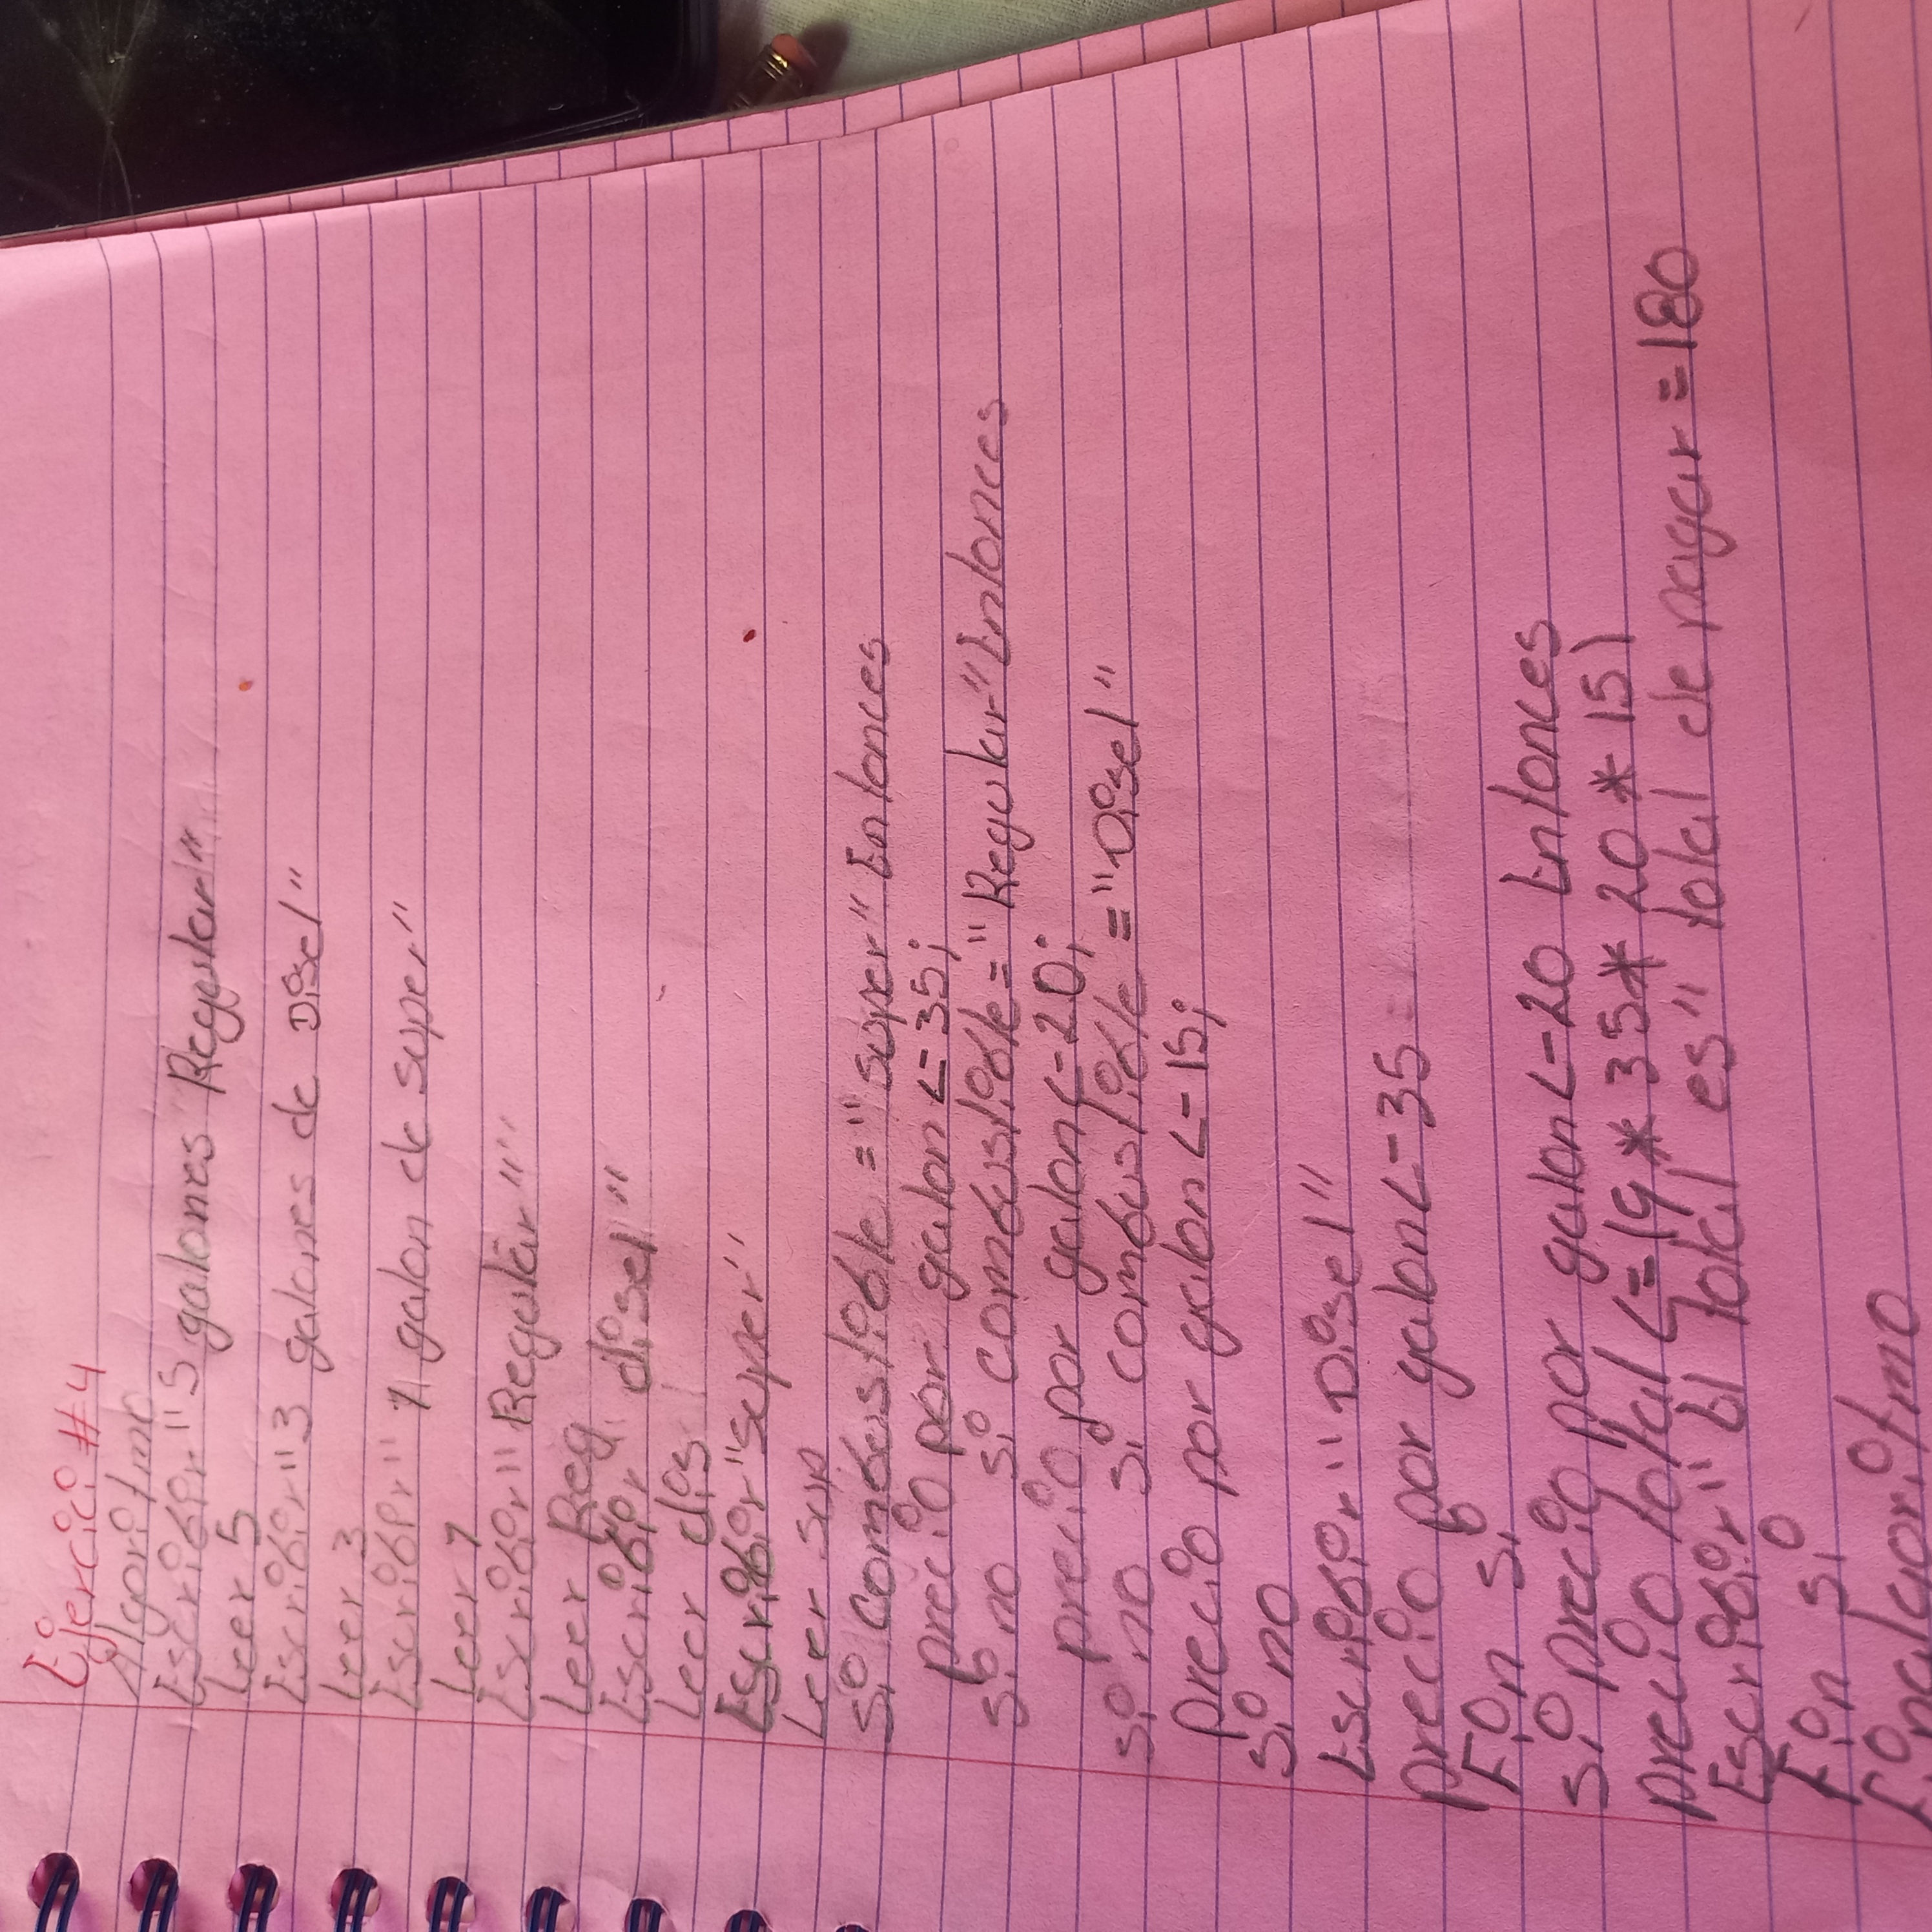 Ejercicio #4
Algoritmo
Escribir "5 galones Regular"
Leer 5
Escribir "3 galones de Disel"
Leer 3
Escribir "1 galon de super"
Leer 1
Escribir "Regular"
Leer Reg
Escribir disel"
Leer dis
Escribir "super"
Leer sup
si combustible = "super" Entonces
precio por galon <= 35;
si no si combustible = "Regular" Entonces
precio por galon <- 20;
si no si combustible = "Disel"
precio por galon <- 15;
si no
Escribir "Disel"
precio por galon <- 35
Fin si
si precio por galon <- 20 Entonces
precio total <= 19 * 35 * 20 * 15)
Escribir "El total es" total de pagar = 180
Fin si
Finalgoritmo